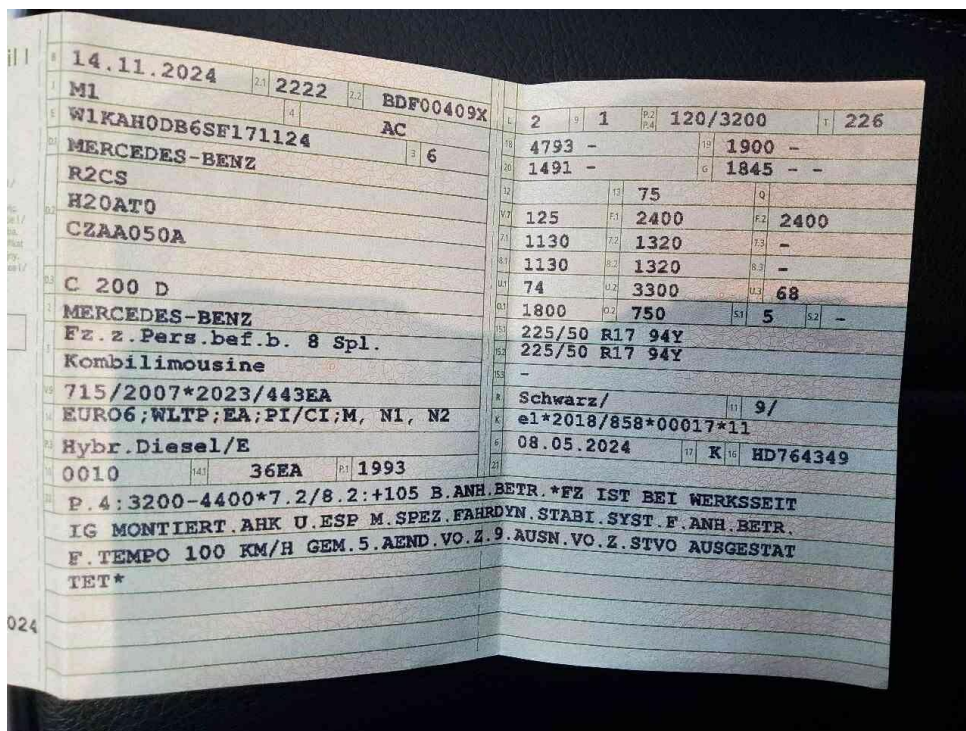 B 14.11.2024 2.1 2222 2.2 BDF00409X
J M1 4 AC
E W1KAH0DB6SF171124 3 6
D.1 MERCEDES-BENZ
R2CS
D.2 H20AT0
CZAA050A
D.3 C 200 D
2 MERCEDES-BENZ
Fz.z.Pers.bef.b. 8 Spl.
5 Kombilimousine
V.9 715/2007*2023/443EA
14 EURO6;WLTP;EA;PI/CI;M, N1, N2
P.3 Hybr.Diesel/E
10 0010 14.1 36EA P.1 1993
L 2 9 1 P.2 P.4 120/3200 T 226
18 4793 - 19 1900 -
20 1491 - G 1845 - -
12 13 75 Q
V.7 125 F.1 2400 F.2 2400
7.1 1130 7.2 1320 7.3 -
8.1 1130 8.2 1320 8.3 -
U.1 74 U.2 3300 U.3 68
O.1 1800 O.2 750 S.1 5 S.2 -
15.1 225/50 R17 94Y
15.2 225/50 R17 94Y
15.3 -
R Schwarz/ 11 9/
K e1*2018/858*00017*11
6 08.05.2024 17 K 16 HD764349
21
22 P.4:3200-4400*7.2/8.2:+105 B.ANH.BETR.*FZ IST BEI WERKSSEIT
IG MONTIERT.AHK U.ESP M.SPEZ.FAHRDYN.STABI.SYST.F.ANH.BETR.
F.TEMPO 100 KM/H GEM.5.AEND.VO.Z.9.AUSN.VO.Z.STVO AUSGESTAT
TET*
024